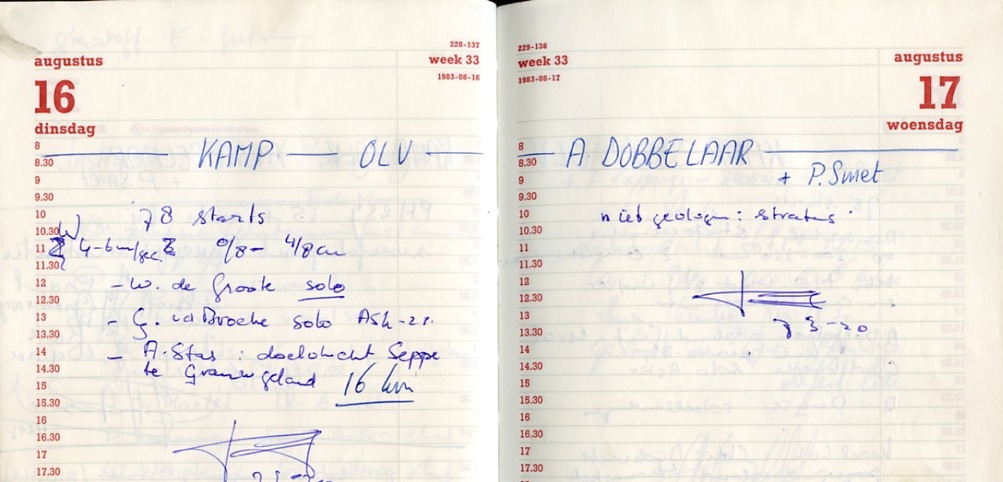 228-137
augustus
week 33
1983-08-16
16
dinsdag
8
8.30
KAMP — OLV
9
9.30
10
78 starts
10.30
W
11
4-6m/sec 0/8 - 4/8 cu
11.30
12
- W. de Groote solo
12.30
13
- G. vd Broche solo ASK-21.
13.30
14
- A. Stas : doelvlucht Seppe
14.30
te Grauwgeland 16 km
15
15.30
16
16.30
17
17.30
229-136
week 33
augustus
1983-08-17
17
woensdag
8
8.30
A. DOBBELAAR
9
+ P. Smet
9.30
10
niet gevlogen : stratus .
10.30
11
11.30
12
12.30
13
73-20
13.30
14
14.30
15
15.30
16
16.30
17
17.30